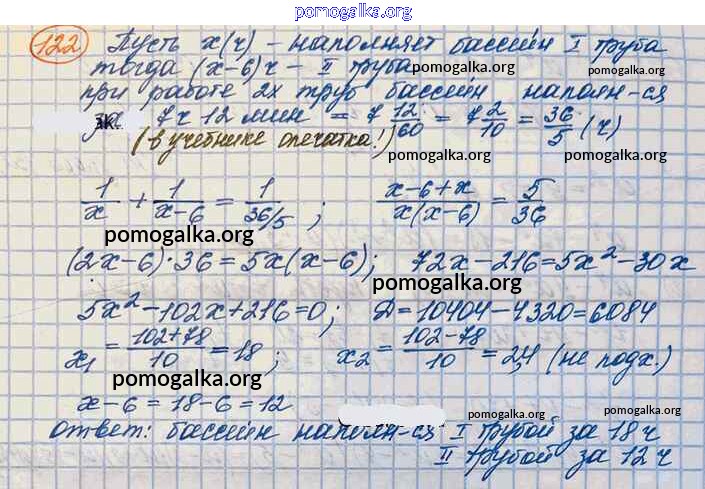 pomogalka.org
122 Пусть x(ч) - наполняет бассейн I труба
тогда (x-6)ч - II труба pomogalka.org
при работе 2х труб бассейн наполн-ся
за 7ч 12 мин = 7 12/60 = 7 2/10 = 36/5 (ч)
(в учебнике опечатка!) pomogalka.org pomogalka.org
1/x + 1/(x-6) = 1/(36/5) ; (x-6+x)/(x(x-6)) = 5/36
pomogalka.org
(2x-6)·36=5x(x-6); 72x-216=5x²-30x
pomogalka.org
5x²-102x+216=0; Д=10404-4320=6084
x₁ = (102+78)/10 = 18; x₂ = (102-78)/10 = 2,4 (не подх.)
pomogalka.org
x-6=18-6=12
pomogalka.org pomogalka.org
ответ: бассейн наполн-ся I трубой за 18ч
II трубой за 12ч
pomogalka.org